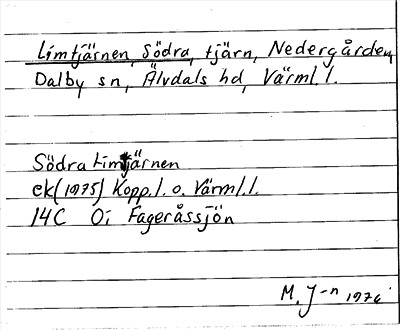 Limtjärnen, Södra, tjärn, Nedergården,
Dalby sn, Älvdals hd, Värml. l.
Södra Limtjärnen
ek (1975) Kopp. l. o. Värml. l.
14C 0i Fageråssjön
M. J-n 1976